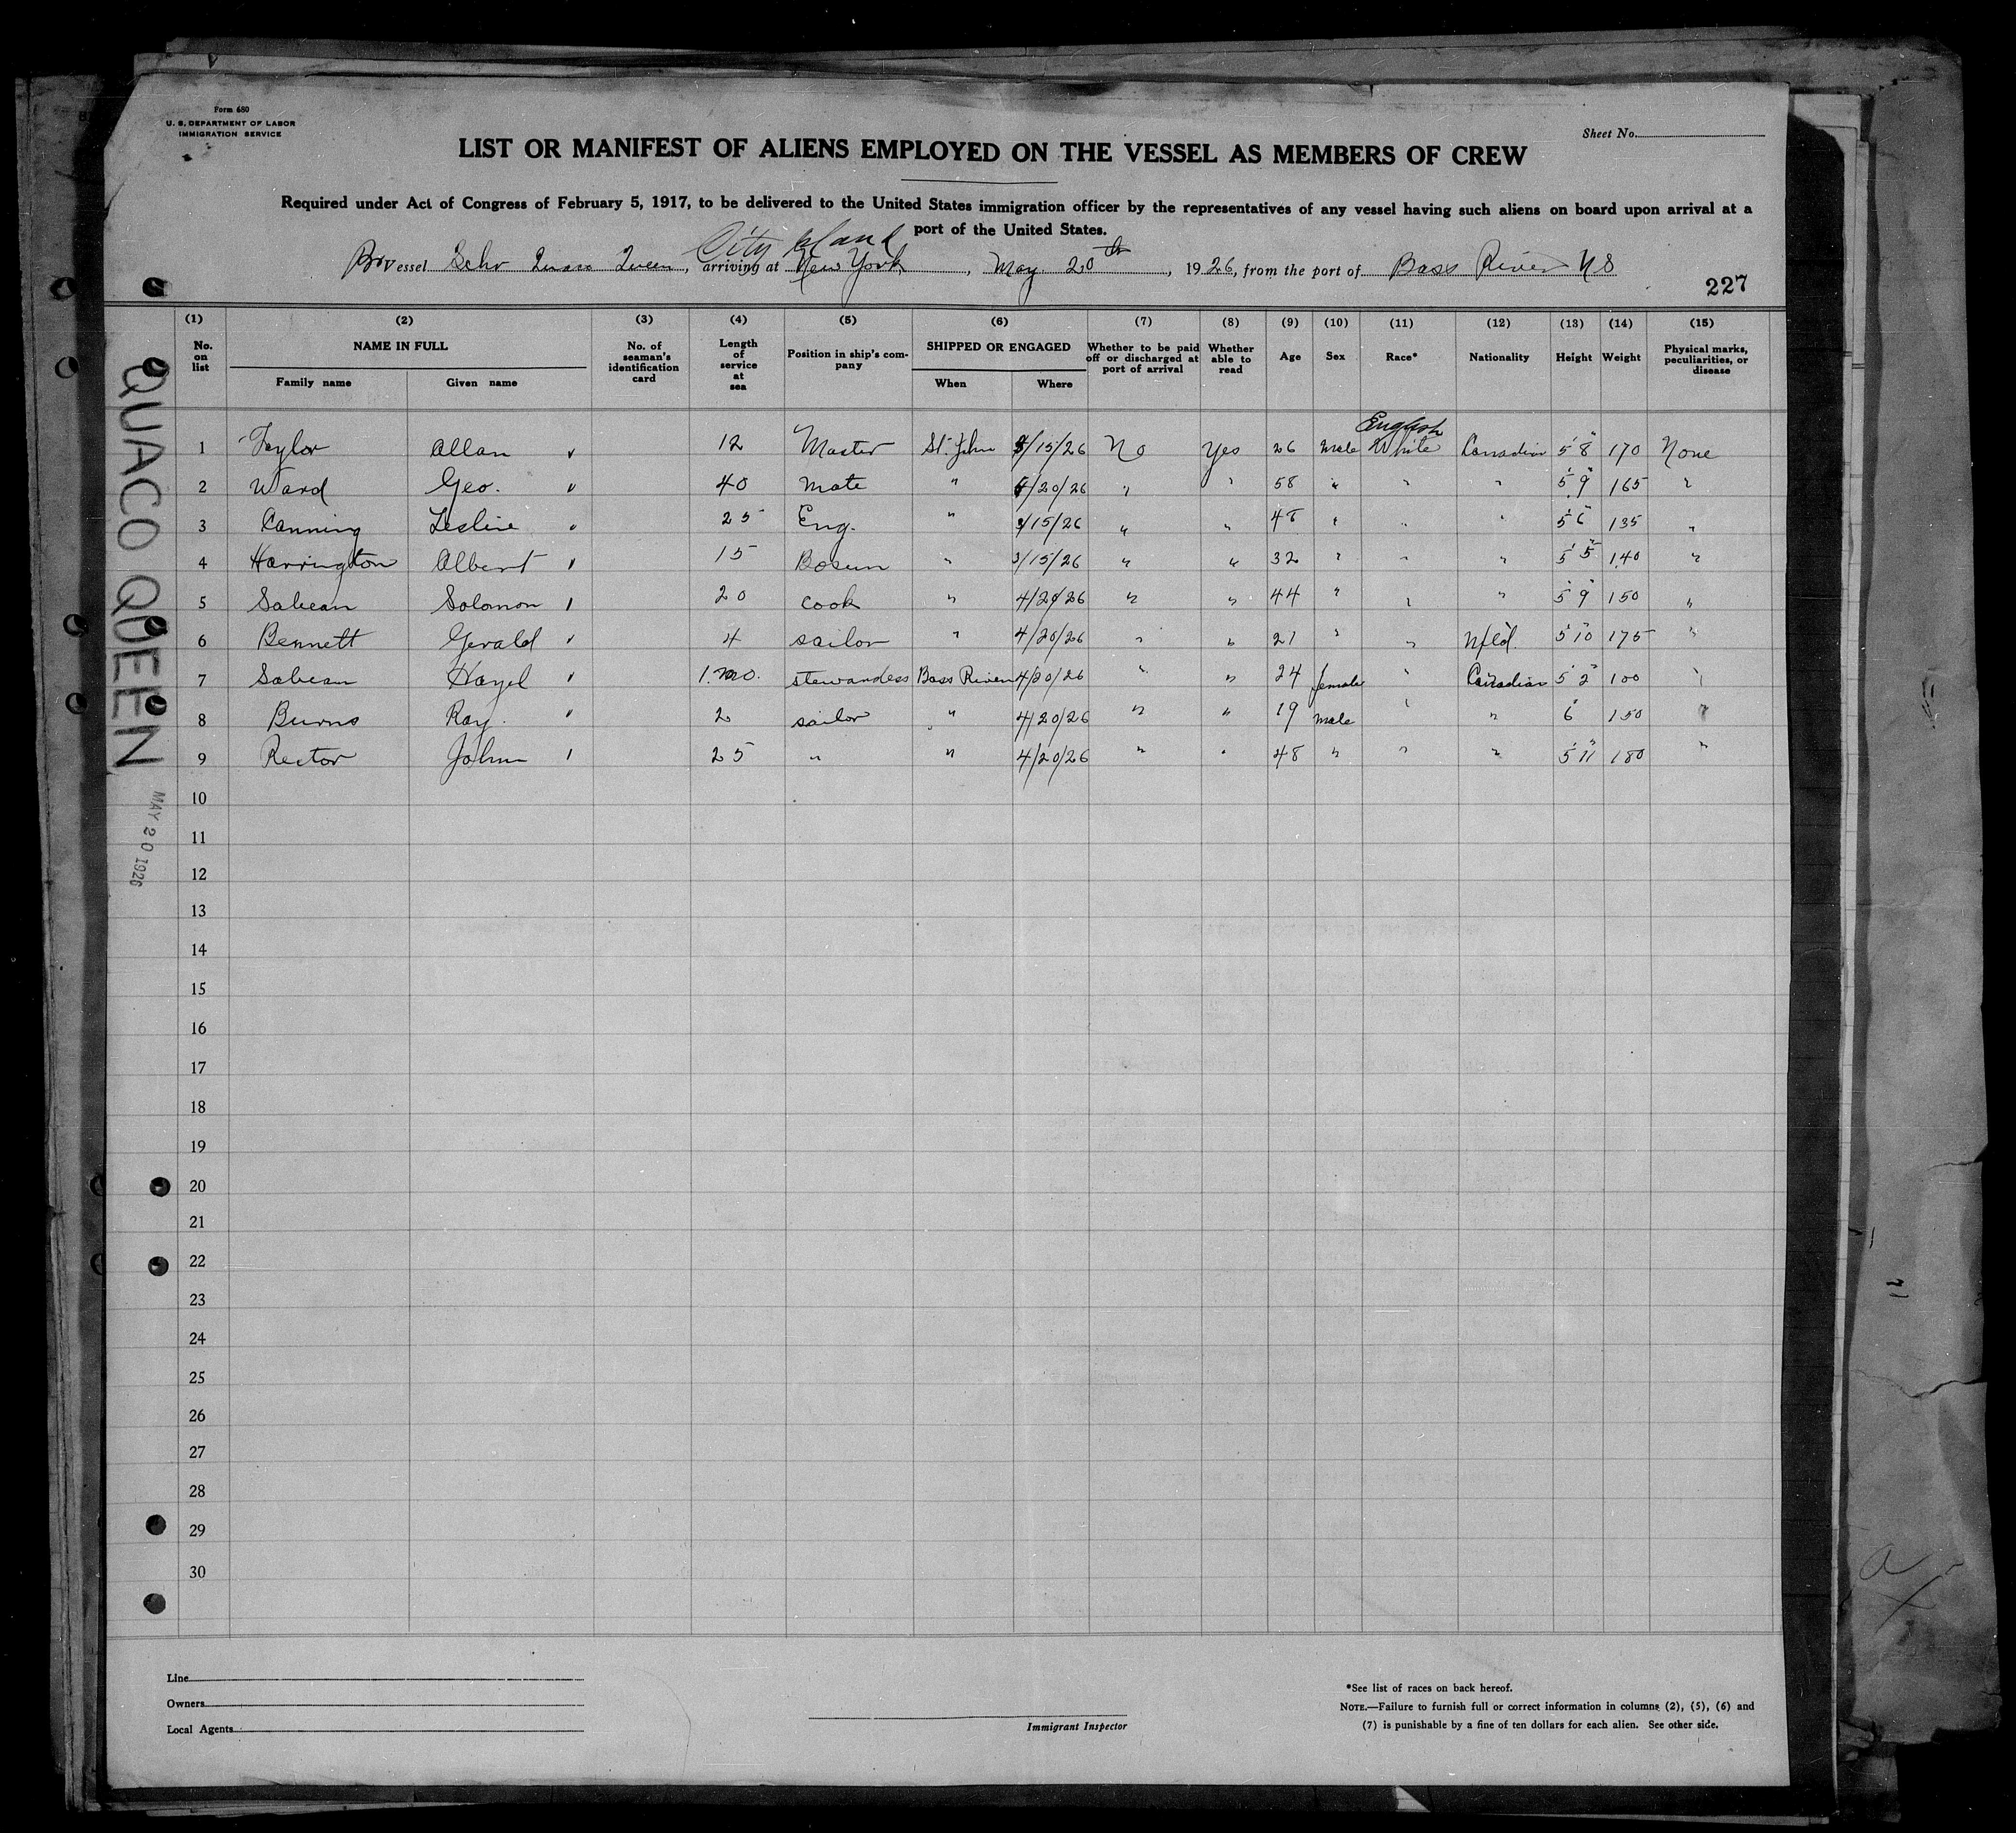 Form 680
U. S. DEPARTMENT OF LABOR
IMMIGRATION SERVICE
Sheet No.
LIST OR MANIFEST OF ALIENS EMPLOYED ON THE VESSEL AS MEMBERS OF CREW
Required under Act of Congress of February 5, 1917, to be delivered to the United States immigration officer by the representatives of any vessel having such aliens on board upon arrival at a
port of the United States.
City Island
Br Vessel Schr Queen, arriving at New York, May 20th, 1926, from the port of Bass River N S
227
(1) (2) (3) (4) (5) (6) (7) (8) (9) (10) (11) (12) (13) (14) (15)
No. on list NAME IN FULL Family name Given name No. of seaman's identification card Length of service at sea Position in ship's company SHIPPED OR ENGAGED When Where Whether to be paid off or discharged at port of arrival Whether able to read Age Sex Race* Nationality Height Weight Physical marks, peculiarities, or disease
English
1 Taylor Allan 12 Master St. John 3/15/26 No Yes 26 Male White Canadian 5' 8" 170 None
2 Ward Geo. 40 Mate " /20/26 " " 58 " " " 5' 9" 165 "
3 Canning Leslie 25 Eng. " 3/15/26 " " 48 " " " 5' 6" 135 "
4 Harrington Albert 15 Bosun " 3/15/26 " " 32 " " " 5' 5" 140 "
5 Sabean Solomon 20 cook " 4/20/26 " " 44 " " " 5' 9" 150 "
6 Bennett Gerald 4 sailor " 4/20/26 " " 21 " " Nfld. 5' 10" 175 "
7 Sabean Hazel 1.mo. stewardess Bass River 4/20/26 " " 24 female " Canadian 5' 2" 100 "
8 Burns Ray. 2 sailor " 4/20/26 " " 19 male " " 6' 150 "
9 Rector John 25 " " 4/20/26 " " 48 " " " 5' 11" 180 "
10
11
12
13
14
15
16
17
18
19
20
21
22
23
24
25
26
27
28
29
30
QUACO QUEEN
MAY 20 1926
Line
Owners
Local Agents
Immigrant Inspector
*See list of races on back hereof.
NOTE.—Failure to furnish full or correct information in columns (2), (5), (6) and
(7) is punishable by a fine of ten dollars for each alien. See other side.